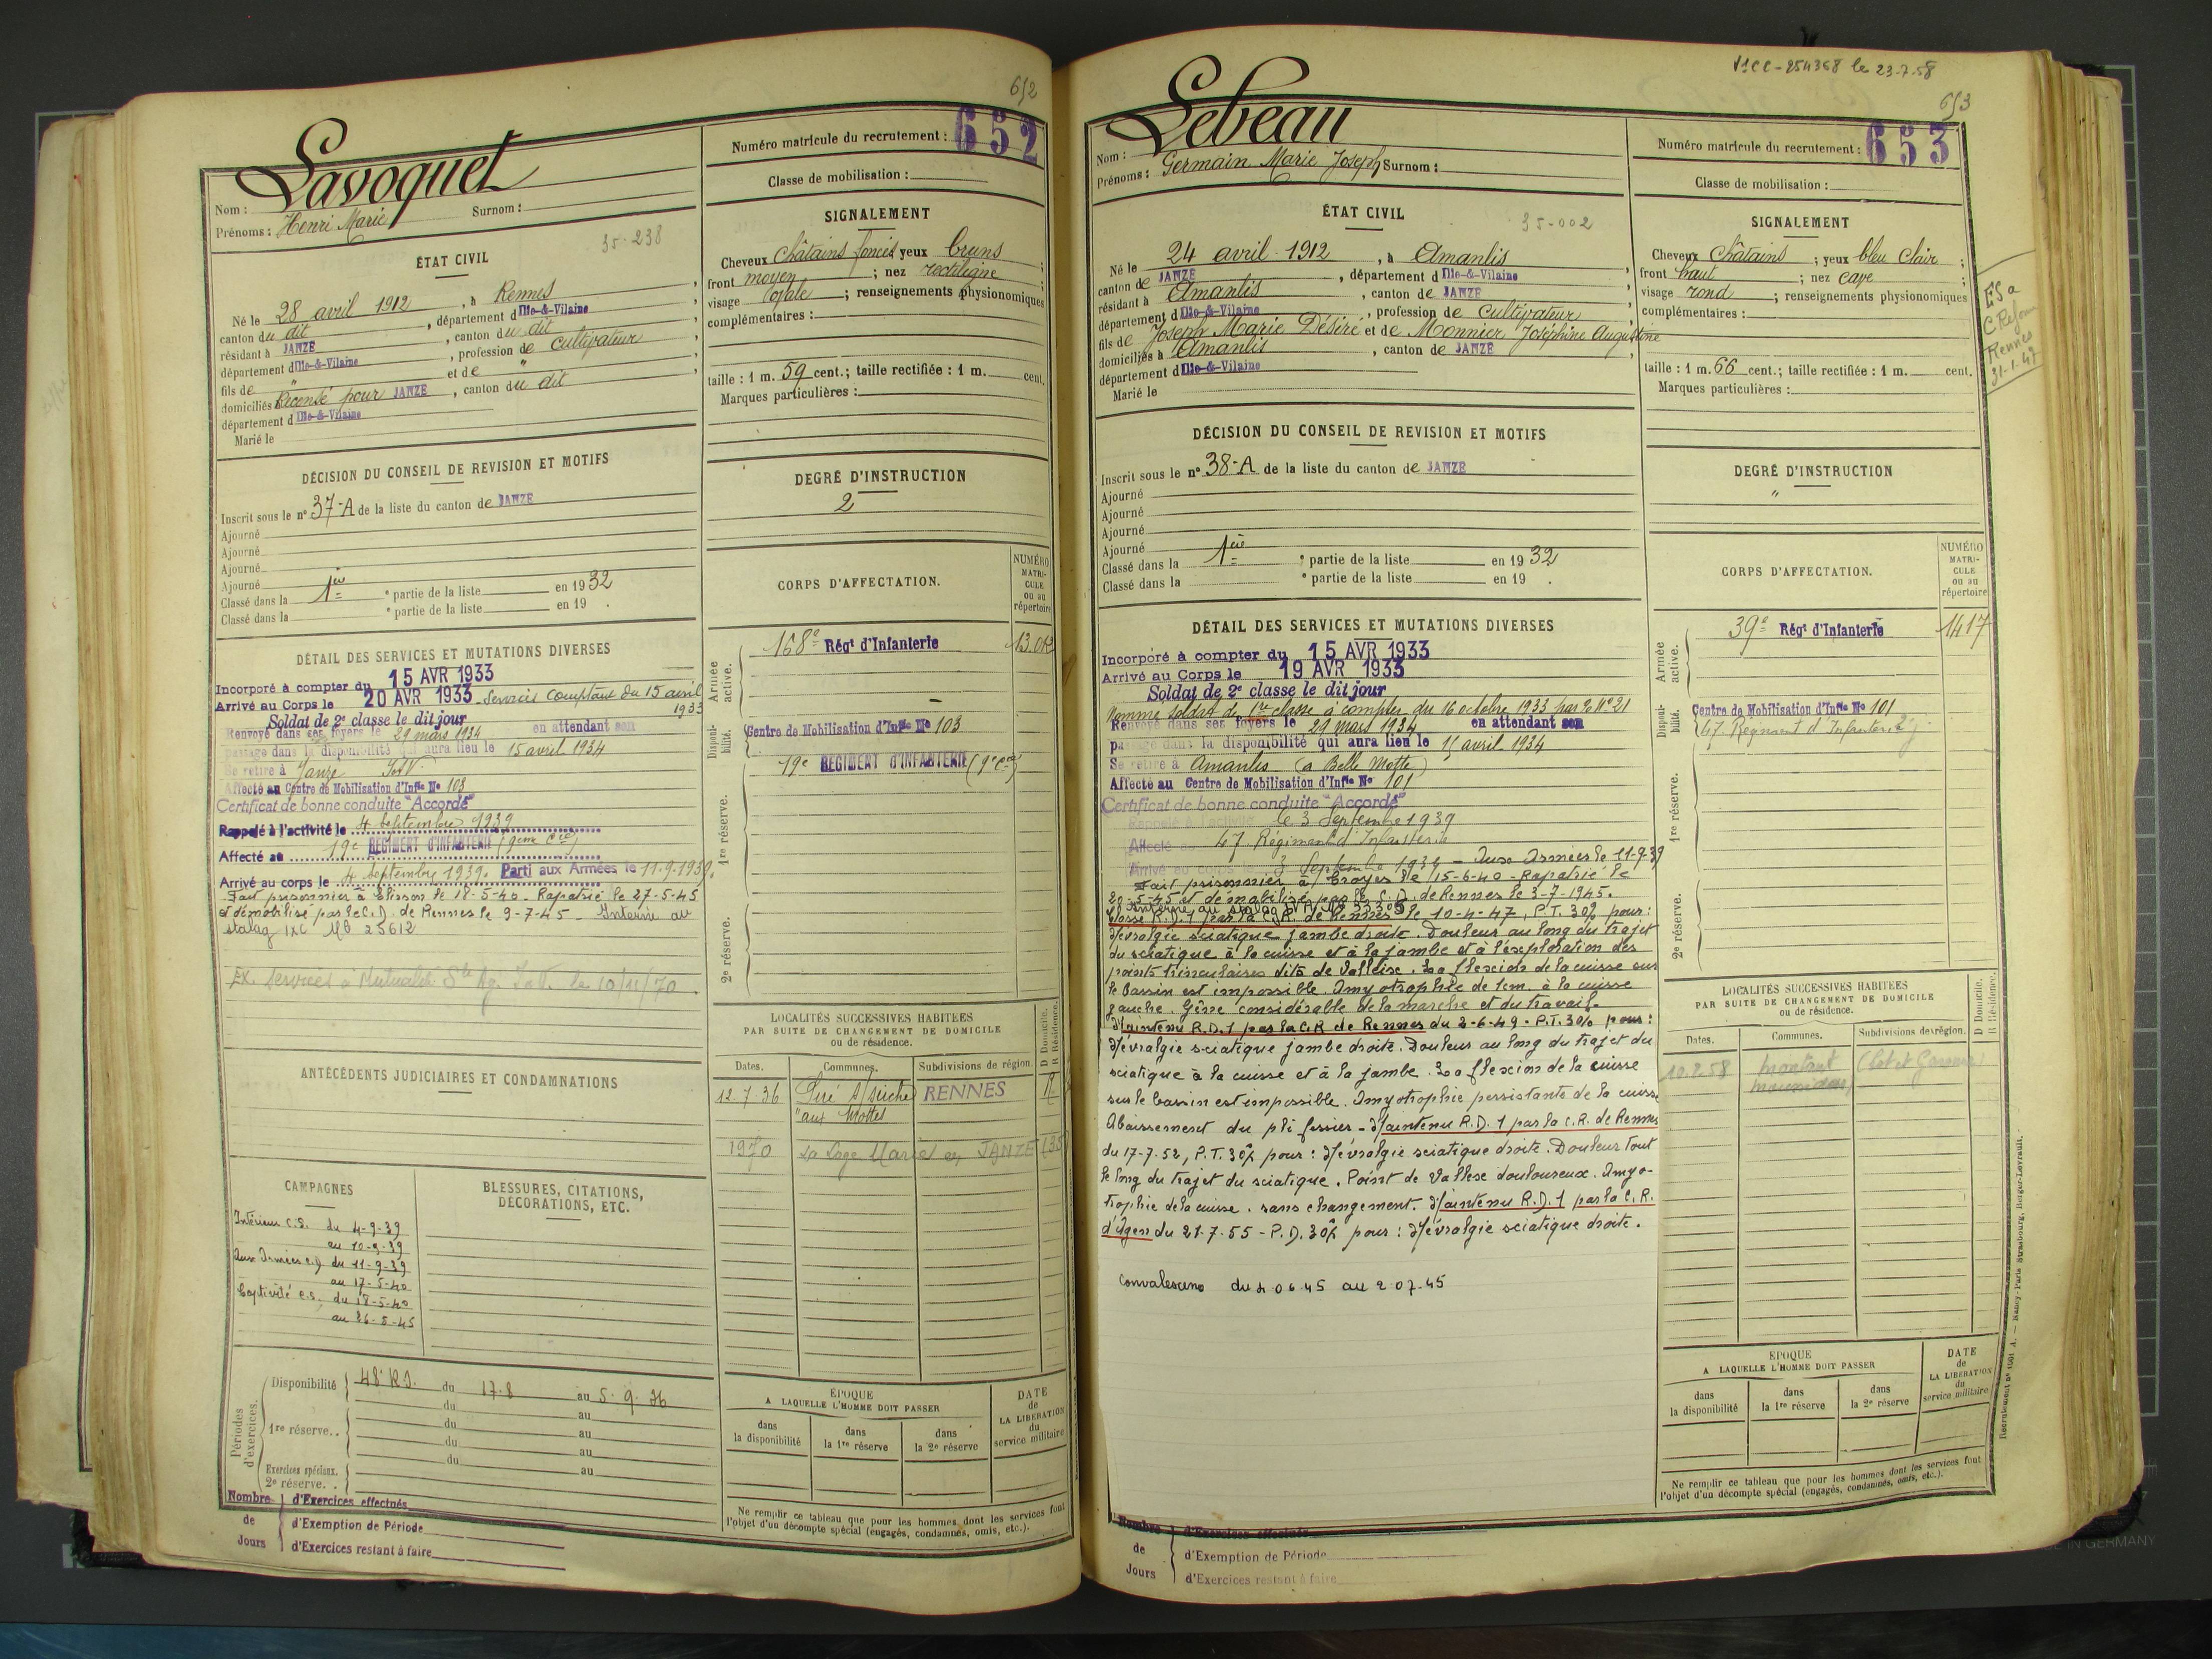 652
Lavoquet
Nom :
Prénoms : Henri Marie Surnom :
Numéro matricule du recrutement : 652
Classe de mobilisation :
35-238
ÉTAT CIVIL
Né le 28 avril 1912, à Rennes,
canton du dit, département d Ille-&-Vilaine
résidant à JANZE, canton du dit
département d Ille-&-Vilaine, profession de cultivateur,
fils de " et de "
domiciliés Recensé pour JANZE, canton du dit,
département d Ille-&-Vilaine
Marié le
SIGNALEMENT
Cheveux Châtains foncés yeux bruns ;
front moyen ; nez rectiligne
visage ovale ; renseignements physionomiques
complémentaires :
taille : 1 m. 59 cent.; taille rectifiée : 1 m. cent.
Marques particulières :
DÉCISION DU CONSEIL DE REVISION ET MOTIFS
Inscrit sous le n° 37-A de la liste du canton de JANZE
Ajourné
Ajourné
Ajourné
Ajourné
Classé dans la 1ère partie de la liste en 1932
Classé dans la e partie de la liste en 19 .
DEGRÉ D'INSTRUCTION
2
DÉTAIL DES SERVICES ET MUTATIONS DIVERSES
Incorporé à compter du 15 AVR 1933
Arrivé au Corps le 20 AVR 1933 Services comptant du 15 avril
1933
Soldat de 2e classe le dit jour
Renvoyé dans ses foyers le 29 mars 1934 en attendant son
passage dans la disponibilité qui aura lieu le 15 avril 1934
Se retire à Janzé I&V
Affecté au Centre de Mobilisation d'Infie No 103
Certificat de bonne conduite "Accordé"
Rappelé à l'activité le 4 Septembre 1939
Affecté au 19e REGIMENT D'INFANTERIE (9eme Cie)
Arrivé au corps le 4 Septembre 1939. Parti aux Armées le 11-9-1939.
Fait prisonnier à Elisson le 18-5-40. Rapatrié le 27-5-45
et démobilisé par le C.D. de Rennes le 9-7-45 - Interné au
stalag IXC No 25612
Ex. Services à Mutualité Ste Ag. I&V. le 10/11/70
CORPS D'AFFECTATION.
NUMÉRO MATRICULE ou au répertoire
Armée active.
168e Régt d'Infanterie
Disponibilité.
Centre de Mobilisation d'Infie No 103
19e REGIMENT D'INFANTERIE (9e Cie)
1re réserve.
2e réserve.
ANTÉCÉDENTS JUDICIAIRES ET CONDAMNATIONS
LOCALITÉS SUCCESSIVES HABITÉES
PAR SUITE DE CHANGEMENT DE DOMICILE
ou de résidence.
Dates. Communes. Subdivisions de région. D Domicile. R Résidence.
12-7-36 Piré s/Seiche RENNES R
"aux Mottes
1970 La Loge Marie en JANZE (35)
CAMPAGNES
Intérieur C.S. du 4-9-39
au 10-9-39
Aux Armées C.D. du 11-9-39
au 17-5-40
Captivité C.S. du 18-5-40
au 26-5-45
BLESSURES, CITATIONS,
DÉCORATIONS, ETC.
Périodes d'exercices.
Disponibilité 48e R.I. du 17-8 au 5-9-36
du au
1re réserve.. du au
du au
du au
Exercices spéciaux.
2e réserve. . au
Nombre de Jours
d'Exercices effectués
d'Exemption de Période
d'Exercices restant à faire
ÉPOQUE
A LAQUELLE L'HOMME DOIT PASSER
DATE de LA LIBÉRATION du service militaire
dans la disponibilité dans la 1re réserve dans la 2e réserve
Ne remplir ce tableau que pour les hommes dont les services font
l'objet d'un décompte spécial (engagés, condamnés, omis, etc.).
le 23-7-58
653
Lebeau
Nom :
Prénoms : Germain Marie Joseph Surnom :
Numéro matricule du recrutement : 653
Classe de mobilisation :
35-002
ÉTAT CIVIL
Né le 24 avril 1912, à Amanlis
canton de JANZE, département d Ille-&-Vilaine
résidant à Amanlis, canton de JANZE
département d Ille-&-Vilaine, profession de cultivateur
fils de Joseph Marie Désiré et de Monnier Joséphine Augustine
domiciliés à Amanlis, canton de JANZE
département d Ille-&-Vilaine
Marié le
SIGNALEMENT
Cheveux Châtains ; yeux bleu clair ;
front haut ; nez cave ;
visage rond ; renseignements physionomiques
complémentaires :
taille : 1 m. 66 cent.; taille rectifiée : 1 m. cent.
Marques particulières :
Rennes
31-1-47
DÉCISION DU CONSEIL DE REVISION ET MOTIFS
Inscrit sous le n° 38-A de la liste du canton de JANZE
Ajourné
Ajourné
Ajourné
Ajourné
Classé dans la 1ère partie de la liste en 1932
Classé dans la e partie de la liste en 19 .
DEGRÉ D'INSTRUCTION
"
DÉTAIL DES SERVICES ET MUTATIONS DIVERSES
Incorporé à compter du 15 AVR 1933
Arrivé au Corps le 19 AVR 1933
Soldat de 2e classe le dit jour
Nommé soldat de 1re classe à compter du 16 octobre 1933 par O. No 21
Renvoyé dans ses foyers le 29 mars 1934 en attendant son
passage dans la disponibilité qui aura lieu le 15 avril 1934
Se retire à Amanlis (a Belle Motte)
Affecté au Centre de Mobilisation d'Infie No 101
Certificat de bonne conduite "Accordé"
Rappelé à l'activité le 3 Septembre 1939
Affecté au 47 Régiment d'Infanterie
Arrivé au corps le 3 Septembre 1939 - Aux Armées le 11-9-39
Fait prisonnier à Troyes le 15-6-40 - Rapatrié le
20-5-45 et démobilisé par le C.D. de Rennes le 3-7-1945.
Classé R.D.1 par la C.R. de Rennes le 10-4-47, P.T. 30% pour :
Névralgie sciatique jambe droite. Douleur au long du trajet
du sciatique à la cuisse et à la jambe et à l'exploration des
points trinculaires dits de Valleise. La flexion de la cuisse sur
le bassin est impossible. Amyotrophie de 1cm. à la cuisse
gauche. Gêne considérable de la marche et du travail.
Maintenu R.D.1 par la C.R. de Rennes du 2-6-49 - P.T. 30% pour :
Névralgie sciatique jambe droite. Douleur au long du trajet du
sciatique à la cuisse et à la jambe. La flexion de la cuisse
sur le bassin est impossible. Amyotrophie persistante de la cuisse
Abaissement du pli fessier - Maintenu R.D.1 par la C.R. de Rennes
du 17-7-52, P.T. 30% pour : Névralgie sciatique droite. Douleur tout
le long du trajet du sciatique. Point de Vallexe douloureux. Amyo-
trophie de la cuisse. sans changement. Maintenu R.D.1 par la C.R.
d'Agen du 21-7-55 - P.D. 30% pour : Névralgie sciatique droite.
du 4.06.45 au 2.07.45
CORPS D'AFFECTATION.
NUMÉRO MATRICULE ou au répertoire
Armée active.
39e Régt d'Infanterie 1417
Disponibilité.
Centre de Mobilisation d'Infie No 101
47. Régiment d'Infanterie
1re réserve.
2e réserve.
LOCALITÉS SUCCESSIVES HABITÉES
PAR SUITE DE CHANGEMENT DE DOMICILE
ou de résidence.
Dates. Communes. Subdivisions de région. D Domicile. R Résidence.
(Lot et Garonne)
ÉPOQUE
A LAQUELLE L'HOMME DOIT PASSER
DATE de LA LIBÉRATION du service militaire
dans la disponibilité dans la 1re réserve dans la 2e réserve
Ne remplir ce tableau que pour les hommes dont les services font
l'objet d'un décompte spécial (engagés, condamnés, omis, etc.).
Nombre de Jours
d'Exercices effectués
d'Exemption de Période
d'Exercices restant à faire
Recrutement n° 1001 A. — Nancy-Paris Strasbourg, Berger-Levrault.
IN GERMANY